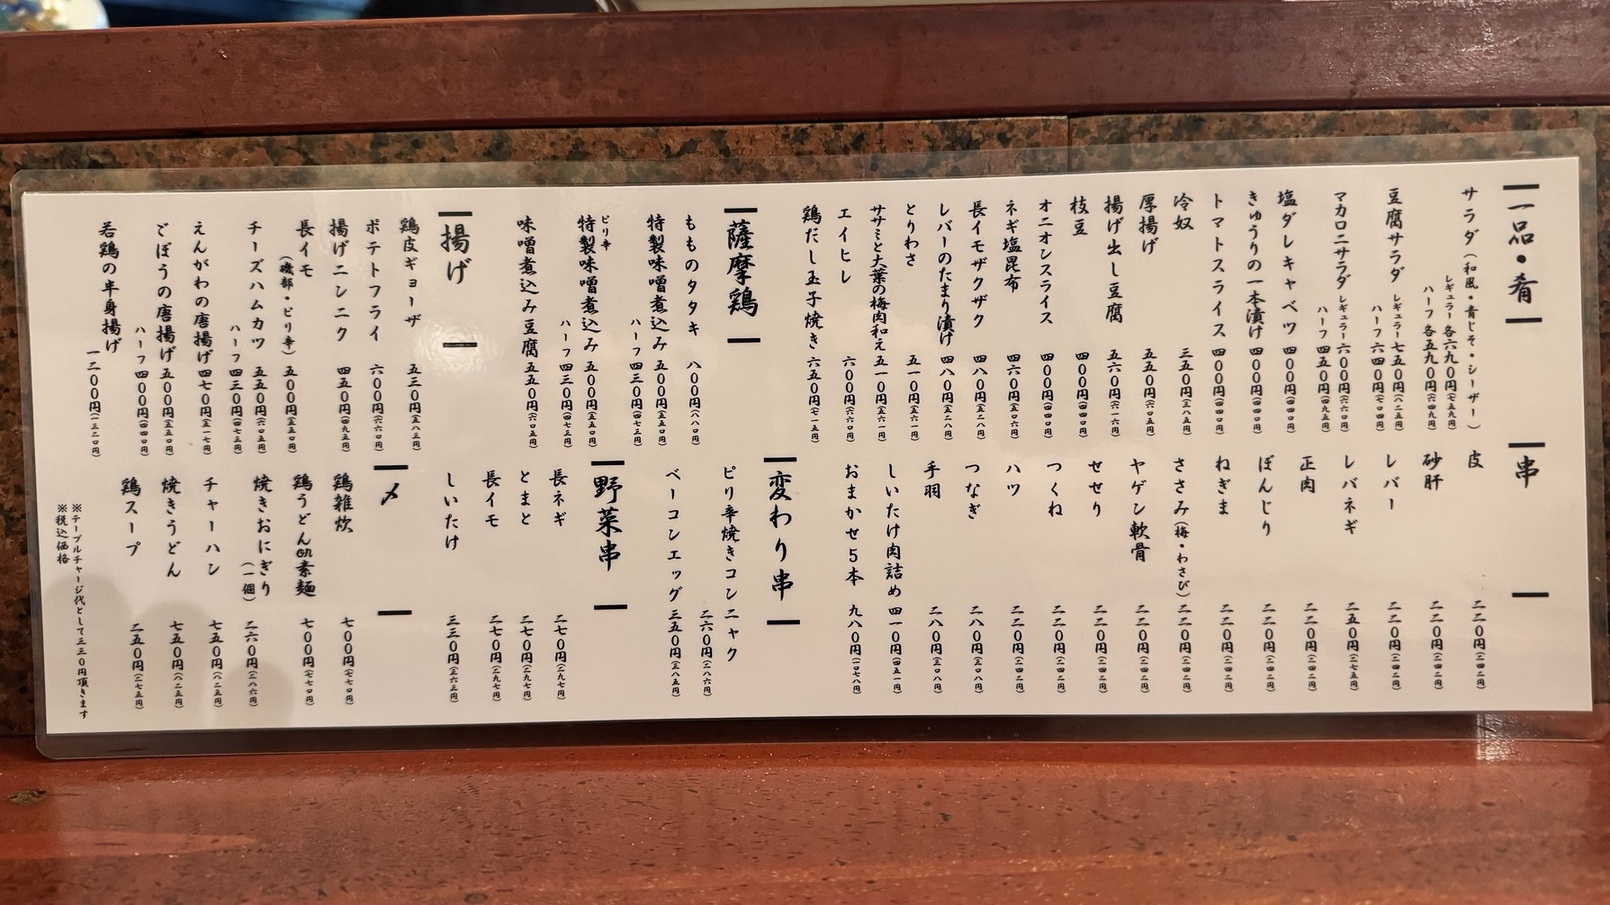 一品・肴
サラダ（和風・青じそ・シーザー）
レギュラー各六九〇円（七五九円）
ハーフ各五九〇円（六四九円）
豆腐サラダ
レギュラー七五〇円（八二五円）
ハーフ六四〇円（七〇四円）
マカロニサラダ
レギュラー六〇〇円（六六〇円）
ハーフ四五〇円（四九五円）
塩ダレキャベツ 四〇〇円（四四〇円）
きゅうりの一本漬け 四〇〇円（四四〇円）
トマトスライス 四〇〇円（四四〇円）
冷奴 三五〇円（三八五円）
厚揚げ 五五〇円（六〇五円）
揚げ出し豆腐 五六〇円（六一六円）
枝豆 四〇〇円（四四〇円）
オニオンスライス 四〇〇円（四四〇円）
ネギ塩昆布 四六〇円（五〇六円）
長イモザクザク 四八〇円（五二八円）
レバーのたまり漬け 四八〇円（五二八円）
とりわさ 五一〇円（五六一円）
ササミと大葉の梅肉和え 五一〇円（五六一円）
エイヒレ 六〇〇円（六六〇円）
鶏だし玉子焼き 六五〇円（七一五円）
薩摩鶏
もものタタキ 八〇〇円（八八〇円）
特製味噌煮込み 五〇〇円（五五〇円）
ハーフ 四三〇円（四七三円）
ピリ辛
特製味噌煮込み 五〇〇円（五五〇円）
ハーフ 四三〇円（四七三円）
味噌煮込み豆腐 五五〇円（六〇五円）
揚げ
鶏皮ギョーザ 五三〇円（五八三円）
ポテトフライ 六〇〇円（六六〇円）
揚げニンニク 四五〇円（四九五円）
長イモ
（磯部・ピリ辛） 五〇〇円（五五〇円）
チーズハムカツ 五五〇円（六〇五円）
ハーフ 四三〇円（四七三円）
えんがわの唐揚げ 四七〇円（五一七円）
ごぼうの唐揚げ 五〇〇円（五五〇円）
ハーフ 四〇〇円（四四〇円）
若鶏の半身揚げ
一二〇〇円（一三二〇円）
串
皮 二二〇円（二四二円）
砂肝 二二〇円（二四二円）
レバー 二二〇円（二四二円）
レバネギ 二五〇円（二七五円）
正肉 二二〇円（二四二円）
ぼんじり 二二〇円（二四二円）
ねぎま 二二〇円（二四二円）
ささみ（梅・わさび） 二二〇円（二四二円）
ヤゲン軟骨 二二〇円（二四二円）
せせり 二二〇円（二四二円）
つくね 二二〇円（二四二円）
ハツ 二二〇円（二四二円）
つなぎ 二八〇円（三〇八円）
手羽 二八〇円（三〇八円）
しいたけ肉詰め 四一〇円（四五一円）
おまかせ５本 九八〇円（一〇七八円）
変わり串
ピリ辛焼きコンニャク
二六〇円（二八六円）
ベーコンエッグ 三五〇円（三八五円）
野菜串
長ネギ 二七〇円（二九七円）
とまと 二七〇円（二九七円）
長イモ 二七〇円（二九七円）
しいたけ 三三〇円（三六三円）
〆
鶏雑炊 七〇〇円（七七〇円）
鶏うどんor素麺 七〇〇円（七七〇円）
焼きおにぎり
（一個） 二六〇円（二八六円）
チャーハン 七五〇円（八二五円）
焼きうどん 七五〇円（八二五円）
鶏スープ 二五〇円（二七五円）
※テーブルチャージ代として三三〇円頂きます
※税込価格